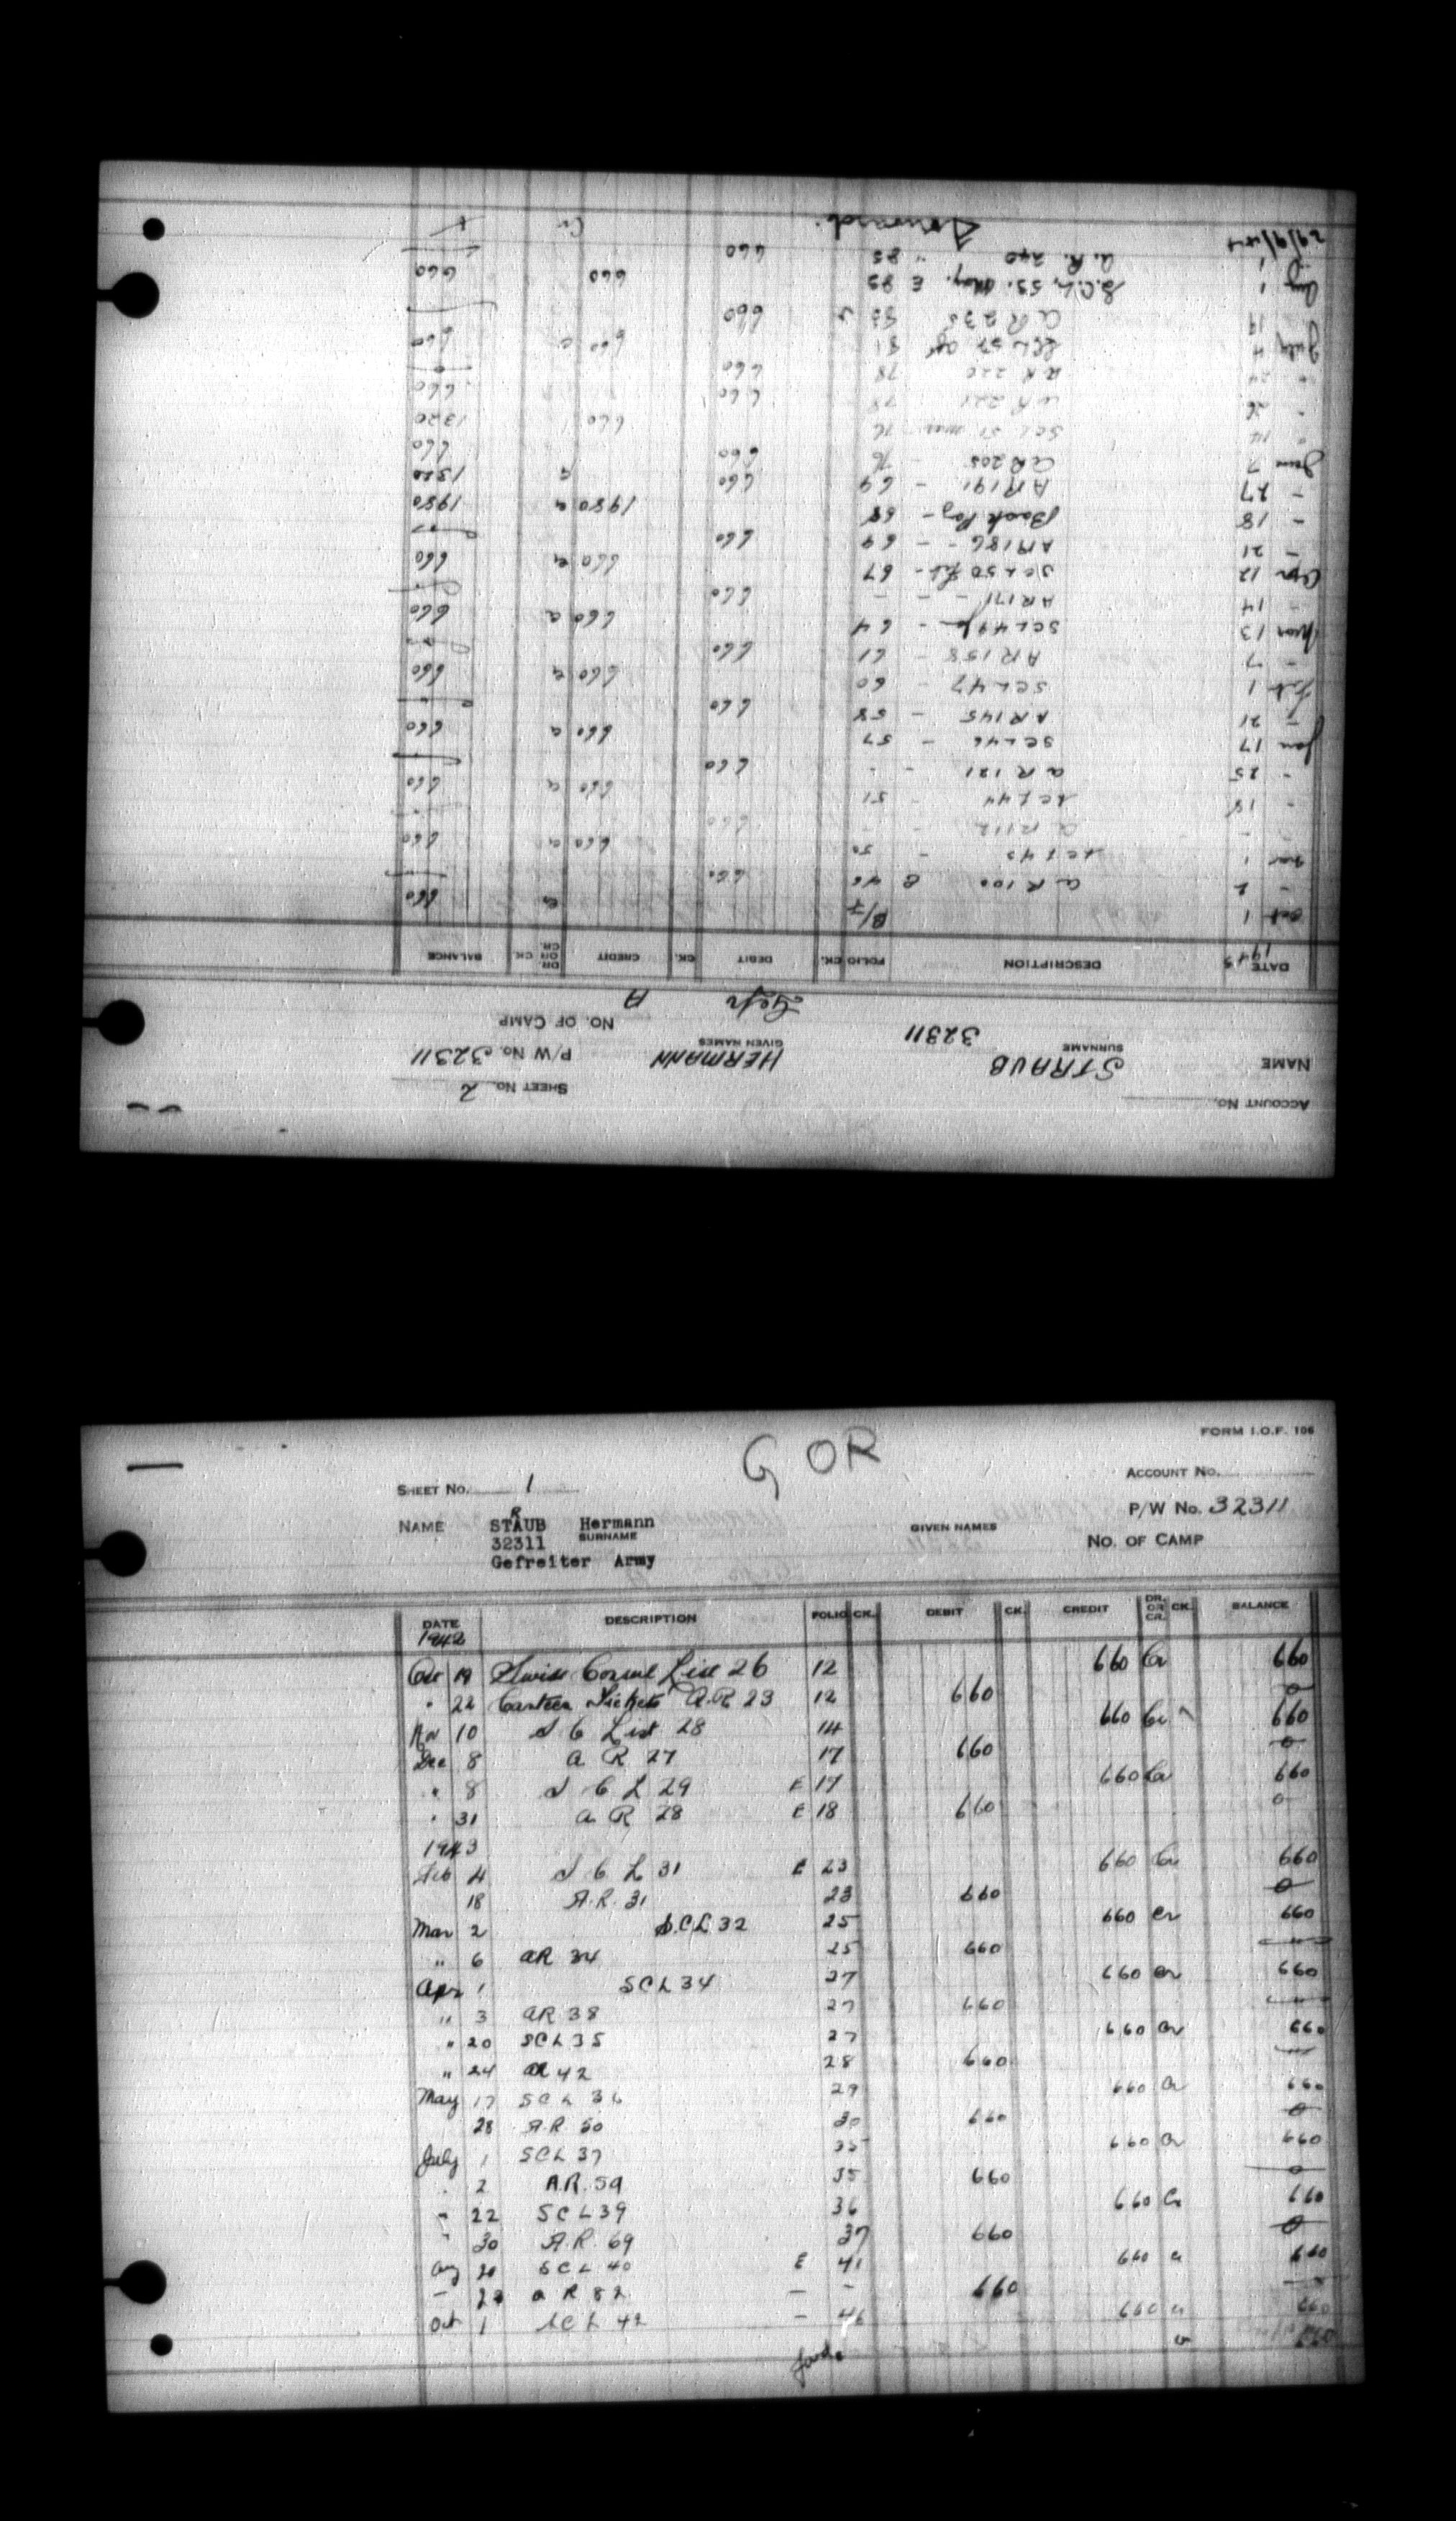 ACCOUNT No.
SHEET No. 2
NAME STRAUB HERMANN P/W No. 32311
SURNAME GIVEN NAMES
32311 Gefr A NO. OF CAMP
DATE DESCRIPTION FOLIO CK. DEBIT CK. CREDIT DR. OR CR. CK. BALANCE
1943
Oct 1 B/F 660
- 2 A R 100 B 46 660
1 SCL 43 - 50 660 660
A R 112 660
- 18 SCL 44 - 51 660 660
- 25 A R 121 - 660
Jan 17 SCL 46 - 57 660 660
- 21 AR 145 - 58 660
Feb 1 SCL 47 - 60 660 660
- 7 AR 158 - 61 660
Mar 13 SCL 49 - 64 660 660
- 14 AR 171 - - 660
Apr 12 SCL 50 Feb - 67 660 660
- 21 AR 186 - - 69 660
- 18 Back Pay - 68 1980 1980
- 27 AR 191 - 69 660 1320
June 7 AR 205 - 76 660 660
" 14 SCL 51 76 660 1320
" 26 A R 221 78 660 660
A R 220 78 660
July 4 SCL 54 81 660 660
19 A R 235 83 660
Aug 1 S.C.L. 55. May. E 85 660 660
A. R. 240 " 85 660
29/9/44 Forward. Cr
FORM I.O.F. 106
G OR
SHEET No. 1 ACCOUNT No.
R P/W No. 32311
NAME STAUB Hermann GIVEN NAMES
32311 SURNAME NO. OF CAMP
Gefreiter Army
DATE DESCRIPTION FOLIO CK. DEBIT CK. CREDIT DR. OR CR. CK. BALANCE
1942
Oct 19 Swiss Consul List 26 12 660 Cr 660
" 22 Canteen Tickets A.R 23 12 660 0
Nov 10 S C List 28 14 660 Cr 660
Dec 8 A R 27 17 660 0
" 8 S C L 29 E 17 660 Cr 660
" 31 A R 28 E 18 660 0
1943
Feb 4 S C L 31 E 23 660 Cr 660
18 A.R. 31 23 660 0
Mar 2 S.C.L 32 25 660 Cr 660
" 6 AR 34 25 660
Apr 1 SCL 34 27 660 Cr 660
" 3 AR 38 27 660
" 20 SCL 35 27 660 Cr 660
" 24 AR 42 28 660
May 17 SCL 36 29 660 Cr 660
28 A.R. 50 30 660 0
July 1 SCL 37 35 660 Cr 660
" 2 A.R. 59 35 660 0
" 22 SCL 39 36 660 Cr 660
" 30 A.R. 69 37 660 0
Aug 20 SCL 40 E 41 660 Cr 660
- A R 82 - - 660
Oct 1 SCL 42 - 46 660 Cr 660
Ford. Cr 660